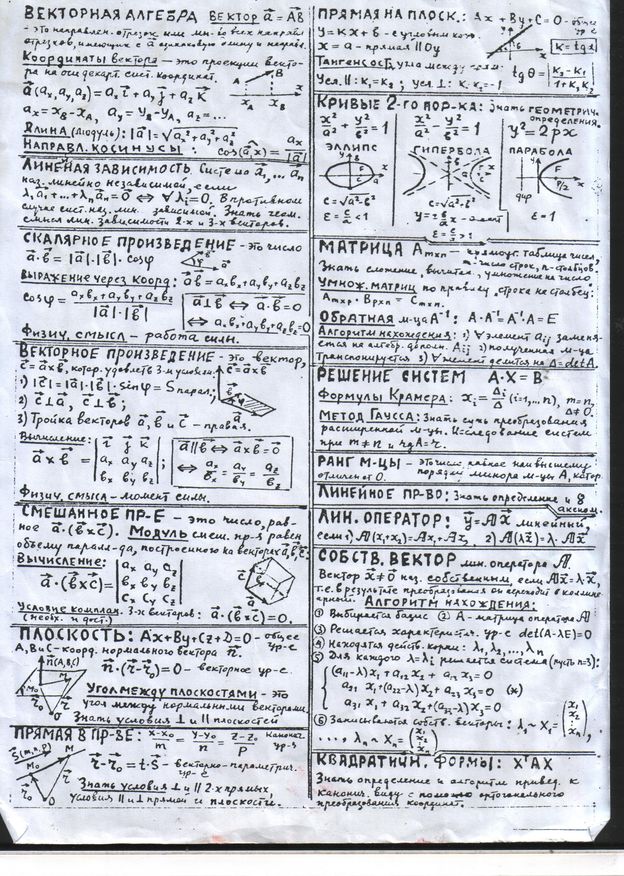 ВЕКТОРНАЯ АЛГЕБРА ВЕКТОР a⃗ = A⃗B⃗
- это направлен. отрезок или мн-во всех направл.
отрезков, имеющих с a⃗ одинаковую длину и направл.
Координаты вектора - это проекции векто-
ра на оси декарт. сист. координат.
a⃗(aₓ, aᵧ, a_z) = aₓi⃗ + aᵧj⃗ + a_z k⃗
aₓ = x_B - x_A, aᵧ = y_B - y_A, a_z = ...
Длина (модуль): |a⃗| = √(aₓ² + aᵧ² + a_z²)
НАПРАВЛ. КОСИНУСЫ: cos(a⃗,x) = aₓ/|a⃗|
ЛИНЕЙНАЯ ЗАВИСИМОСТЬ. Система a⃗₁, ... a⃗ₙ
наз. линейно независимой, если
λ₁a⃗₁ + ... + λₙa⃗ₙ = 0 ⇔ ∀λᵢ = 0. В противном
случае сист. наз. лин. зависимой. Знать геом.
смысл лин. зависимости 2-х и 3-х векторов.
СКАЛЯРНОЕ ПРОИЗВЕДЕНИЕ - это число
a⃗·b⃗ = |a⃗|·|b⃗|·cosφ
Выражение через коорд: a⃗b⃗ = aₓbₓ + aᵧbᵧ + a_z b_z
cosφ = (aₓbₓ + aᵧbᵧ + a_z b_z)/(|a⃗|·|b⃗|) a⃗⊥b⃗ ⇔ a⃗·b⃗ = 0
⇔ aₓbₓ + aᵧbᵧ + a_z b_z = 0
Физич. смысл - работа силы.
ВЕКТОРНОЕ ПРОИЗВЕДЕНИЕ - это вектор,
c⃗ = a⃗×b⃗, котор. удовлетв. 3-м условиям. c⃗ = a⃗×b⃗
1) |c⃗| = |a⃗|·|b⃗|·sinφ = S парал;
2) c⃗⊥a⃗, c⃗⊥b⃗;
3) Тройка векторов a⃗, b⃗, c⃗ - правая.
Вычисление:
a⃗×b⃗ = | i⃗ j⃗ k⃗ |
| aₓ aᵧ a_z |
| bₓ bᵧ b_z | ; a⃗∥b⃗ ⇔ a⃗×b⃗ = 0⃗
⇔ aₓ/bₓ = aᵧ/bᵧ = a_z/b_z
Физич. смысл - момент силы.
СМЕШАННОЕ ПР-Е - это число, рав-
ное a⃗·(b⃗×c⃗). Модуль смеш. пр-я равен
объему паралл-да, построенного на векторах a⃗, b⃗, c⃗
Вычисление:
a⃗·(b⃗×c⃗) = | aₓ aᵧ a_z |
| bₓ bᵧ b_z |
| cₓ cᵧ c_z |
Условие комплан. 3-х векторов: a⃗·(b⃗×c⃗) = 0.
(необх. и дост.)
ПЛОСКОСТЬ: Ax + By + Cz + D = 0 - общее
ур-е
A, B и C - коорд. нормального вектора n⃗.
n⃗(A,B,C)
n⃗·(r⃗ - r⃗₀) = 0 - векторное ур-е.
Угол между плоскостями - это
угол между нормальными векторами.
Знать условия ⊥ и ∥ плоскостей
ПРЯМАЯ В ПР-ВЕ: (x-x₀)/m = (y-y₀)/n = (z-z₀)/p канонич.
ур-я
s⃗(m,n,p)
r⃗ - r⃗₀ = t·s⃗ - векторно-параметрич.
ур-е
Знать условия ⊥ и ∥ 2-х прямых,
условия ∥ и ⊥ прямой и плоскости.
ПРЯМАЯ НА ПЛОСК.: Ax + By + C = 0 - общее
ур-е
y = kx + b - с угловым коэф.
x = a - прямая ∥ Oy k = tgα
Тангенс угла между прям.
tgθ = |(k₂ - k₁)/(1 + k₁k₂)|
Усл. ∥: k₁ = k₂; усл. ⊥: k₁·k₂ = -1
КРИВЫЕ 2-го ПОР-КА: знать ГЕОМЕТРИЧ.
определения.
x²/a² + y²/b² = 1 x²/a² - y²/b² = 1 y² = 2px
ЭЛЛИПС ГИПЕРБОЛА ПАРАБОЛА
c = √(a²-b²) c = √(a²+b²) дир F p/2
ε = c/a < 1 y = ± b/a x - асимпт ε = 1
ε = c/a > 1
МАТРИЦА Aₘₓₙ - прямоуг. таблица чисел,
m - число строк, n - столбцов.
Знать сложение, вычитан., умножение на число
Умнож. матриц по правилу „строка на столбец:
Aₘₓₚ·Bₚₓₙ = Cₘₓₙ.
ОБРАТНАЯ м-ца A⁻¹: A·A⁻¹ = A⁻¹·A = E
Алгоритм нахождения: 1) ∀ элемент aᵢⱼ заменя-
ется на алгебр. дополн. Aᵢⱼ 2) полученная м-ца
транспонируется 3) ∀ элемент делится на Δ = detA.
РЕШЕНИЕ СИСТЕМ A·X = B
Формулы Крамера: xᵢ = Δᵢ/Δ (i=1,...n), m = n,
Δ ≠ 0.
МЕТОД ГАУССА: Знать суть преобразования
расширенной м-цы. Исследование систем
при m ≠ n и rgA = r.
РАНГ М-ЦЫ - это число, равное наивысшему
порядку минора м-цы A, котор.
отличен от 0.
ЛИНЕЙНОЕ ПР-ВО: Знать определение и 8
аксиом.
ЛИН. ОПЕРАТОР: y⃗ = Ax⃗ линейный,
если 1) A(x₁+x₂) = Ax₁ + Ax₂, 2) A(λx⃗) = λ·Ax⃗
СОБСТВ. ВЕКТОР лин. оператора A.
Вектор x⃗ ≠ 0 наз. собственным, если Ax⃗ = λ·x⃗,
т.е. в результате преобразования он переходит в коллине-
арный. АЛГОРИТМ НАХОЖДЕНИЯ:
① Выбирается базис ② A - матрица оператора A
③ Решается характеристич. ур-е det(A-λE) = 0
④ Находятся действ. корни: λ₁, λ₂, ..., λₙ
⑤ Для каждого λ = λᵢ решается система (пусть n=3):
(a₁₁-λ)x₁ + a₁₂x₂ + a₁₃x₃ = 0
a₂₁x₁ + (a₂₂-λ)x₂ + a₂₃x₃ = 0 (*)
a₃₁x₁ + a₃₂x₂ + (a₃₃-λ)x₃ = 0
⑥ Записываются собств. векторы: λ₁ ~ X₁ = (x₁ x₂ x₃),
..., λₙ ~ Xₙ = (x₁ x₂ x₃)
КВАДРАТИЧН. ФОРМЫ: XᵀAX
Знать определение и алгоритм привед. к
канонич. виду с помощью ортогонального
преобразования координат.